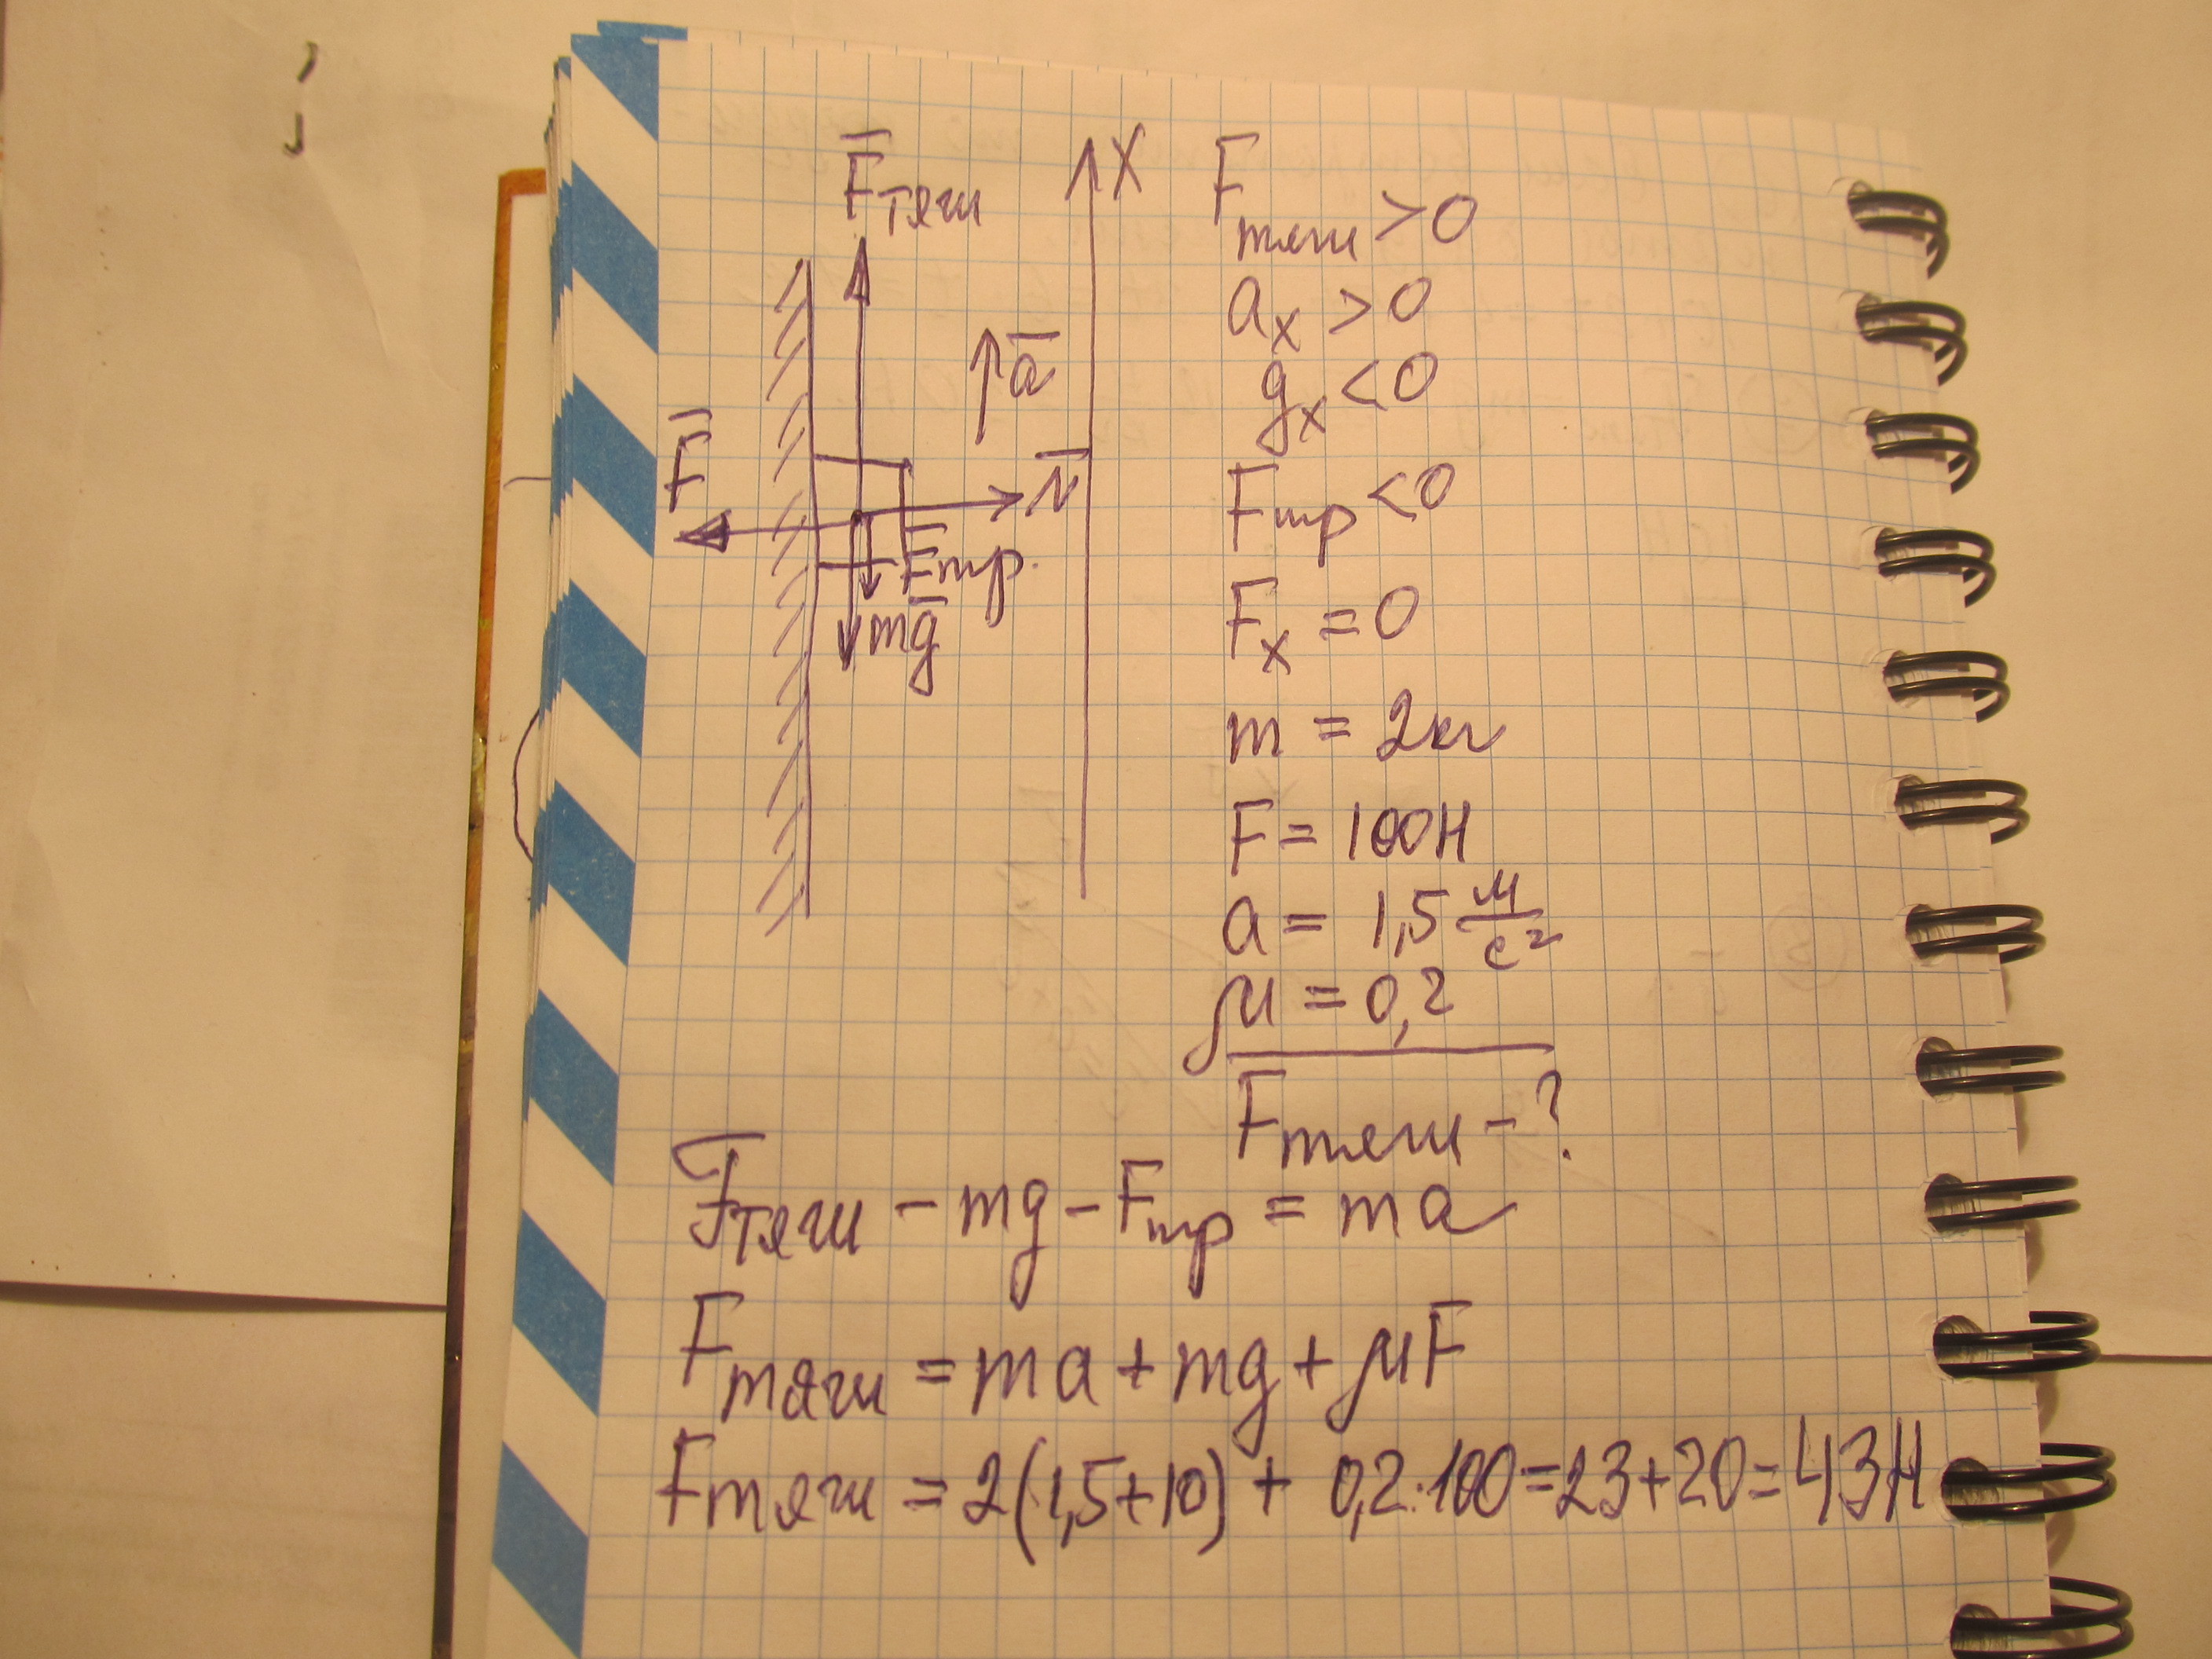 F̅тяги
X
a̅
F̅
N̅
F̅тр.
mg̅
Fтяги >0
ax >0
gx <0
Fтр <0
Fx =0
m = 2кг
F = 100Н
a = 1,5 м/с²
μ = 0,2
Fтяги -?
Fтяги - mg - Fтр = ma
Fтяги = ma + mg + μF
Fтяги = 2(1,5+10) + 0,2·100=23+20=43Н